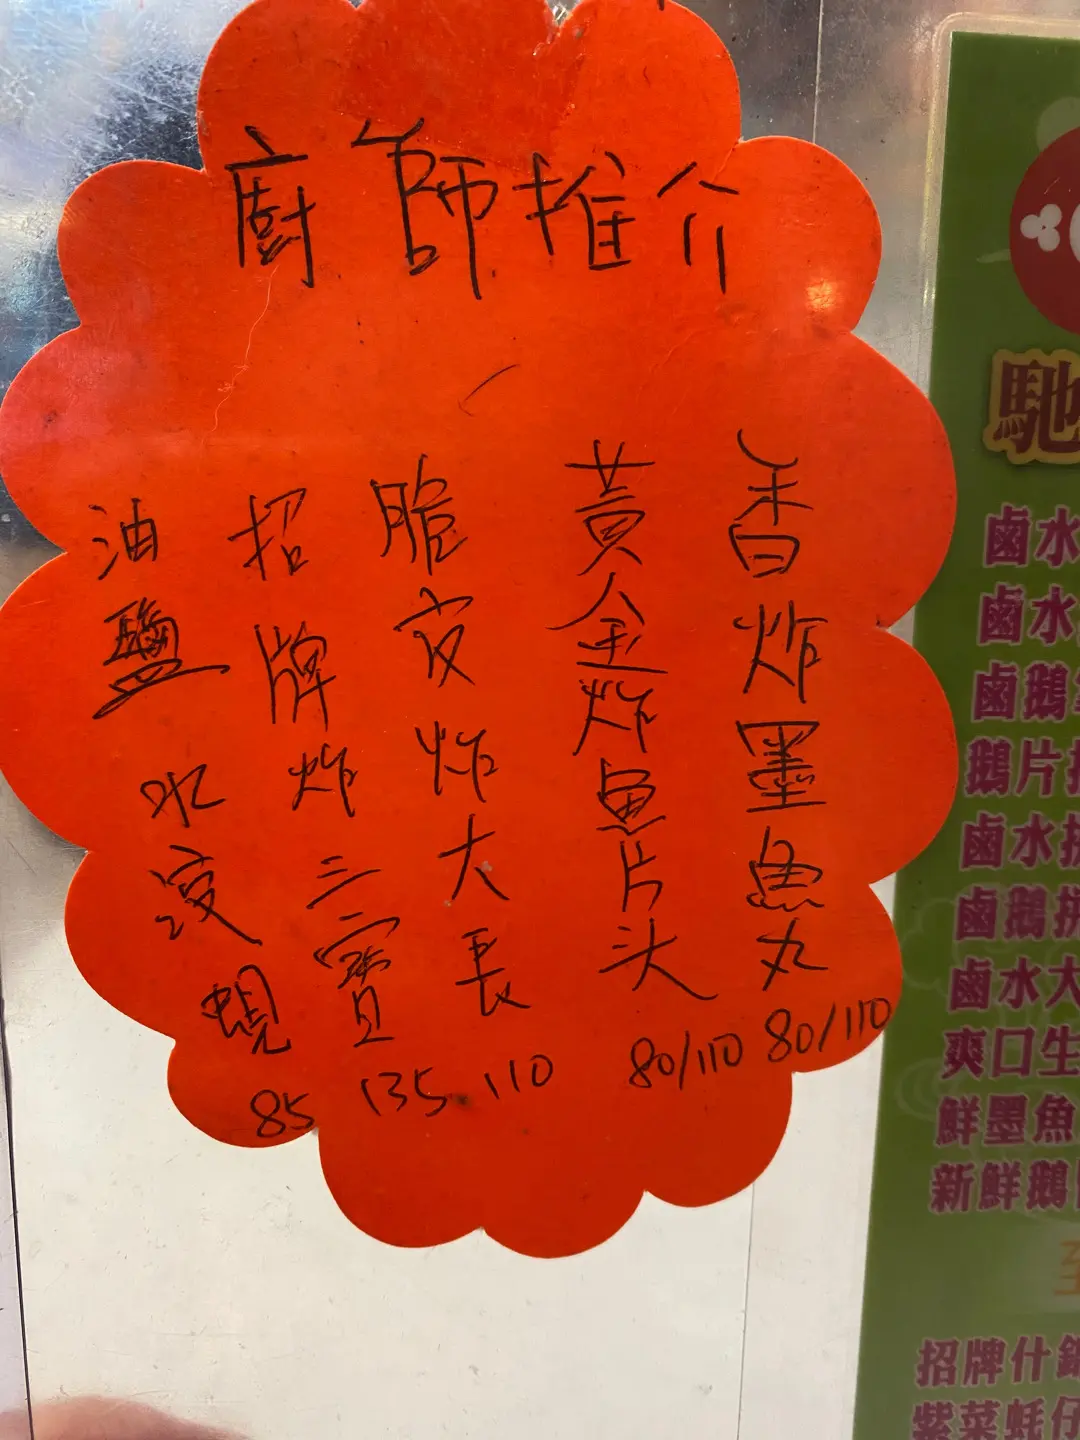 廚師推介
香炸墨魚丸 80/110
黃金炸魚片头 80/110
脆皮炸大長 110
招牌炸三寶 135
油鹽水浸蜆 85
馳
鹵水
鹵水
鹵鵝
鵝片
鹵水拼
鹵鵝拼
鹵水大
爽口生
鮮墨魚
新鮮鵝
至
招牌什
紫菜蚝仔